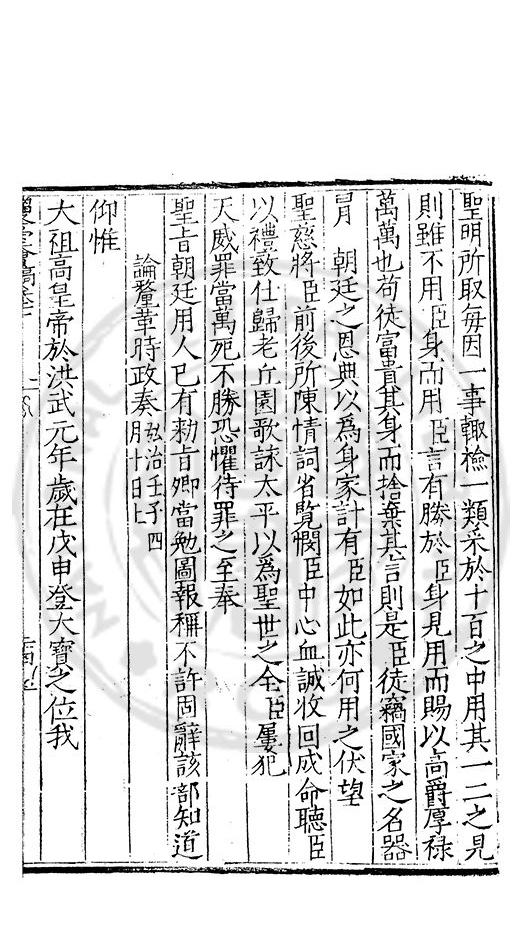 聖明所取每因一事輙檢一類采於十百之中用其一二之見
則雖不用臣身而用臣言有勝於臣身見用而賜以高爵厚祿
萬萬也苟徒富貴其身而捨棄其言則是臣徒竊國家之名器
冐 朝廷之恩典以為身家計有臣如此亦何用之伏望
聖慈將臣前後所陳情詞省覽憫臣中心血誠收回成命聽臣
以禮致仕歸老丘園歌詠太平以爲聖世之全臣屢犯
天威罪當萬死不勝恐懼待罪之至奉
聖旨朝廷用人已有勑旨卿當勉圖報稱不許固辭該部知道
論釐革時政奏弘治壬子四
月十日上
仰惟
大祖高皇帝於洪武元年歲在戊申登大寶之位我